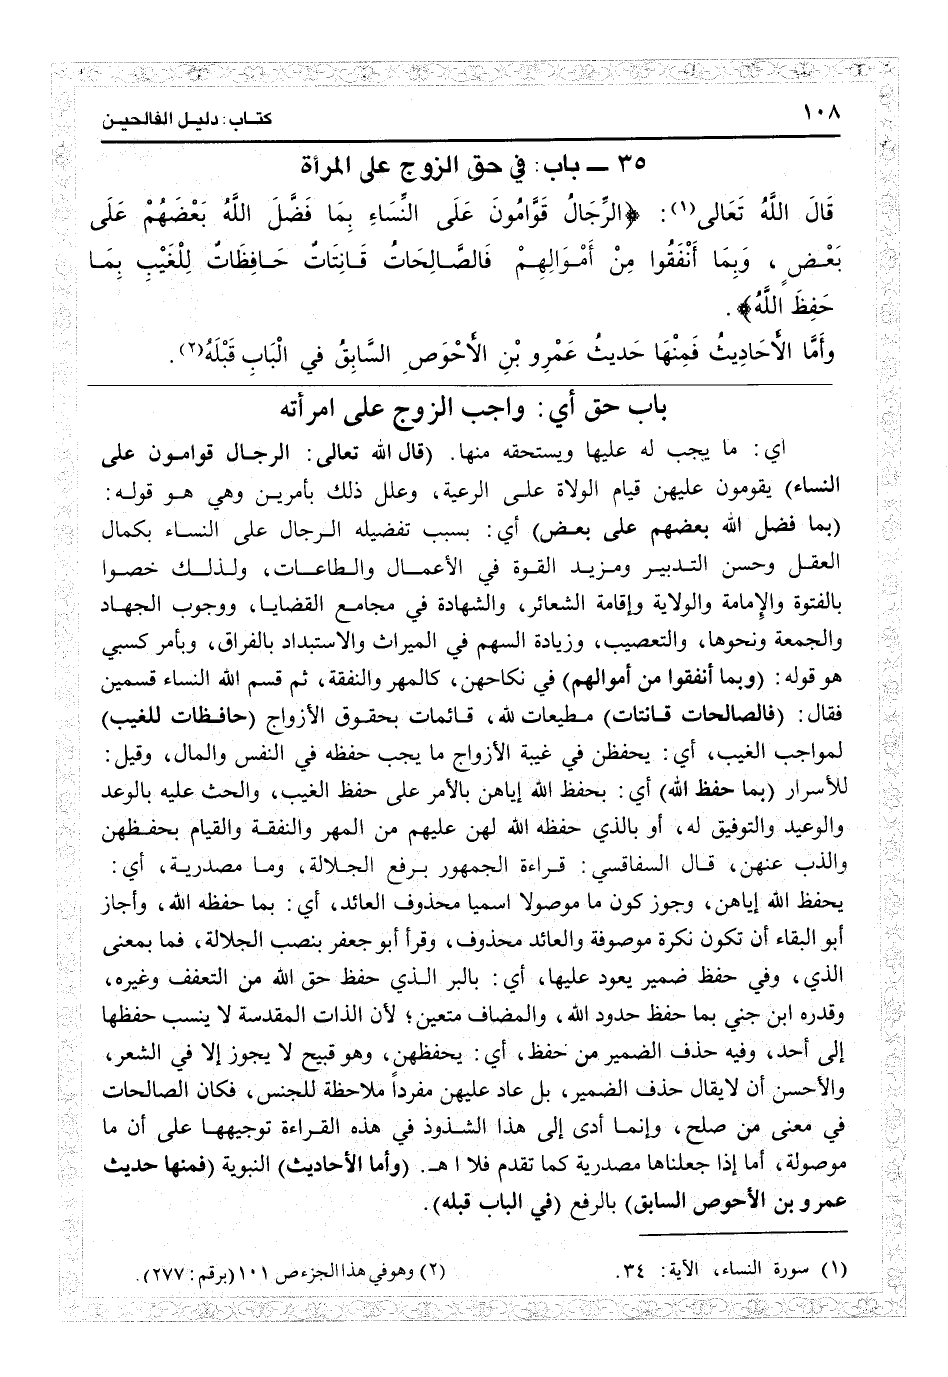 ١٠٨
كتاب: دليل الفالحين
٣٥ ــ باب: في حق الزوج على المرأة
قَالَ اللَّهُ تَعَالى(١): ﴿الرِّجَالُ قَوَّامُونَ عَلَى النِّسَاءِ بِمَا فَضَّلَ اللَّهُ بَعْضَهُمْ عَلَى
بَعْضٍ، وَبِمَا أَنْفَقُوا مِنْ أَمْوَالِهِمْ فَالصَّالِحَاتُ قَانِتَاتٌ حَافِظَاتٌ لِلْغَيْبِ بِمَا
حَفِظَ اللَّهُ﴾.
وأَمَّا الأَحَادِيثُ فَمِنْهَا حَدِيثُ عَمْرِو بْنِ الأَحْوَصِ السَّابِقُ في الْبَابِ قَبْلَهُ(٢).
باب حق أي: واجب الزوج على امرأته
اي: ما يجب له عليها ويستحقه منها. (قال الله تعالى: الرجال قوامون على
النساء) يقومون عليهن قيام الولاة على الرعية، وعلل ذلك بأمرين وهي هو قوله:
(بما فضل الله بعضهم على بعض) أي: بسبب تفضيله الرجال على النساء بكمال
العقل وحسن التدبير ومزيد القوة في الأعمال والطاعات، ولذلك خصوا
بالفتوة والإمامة والولاية وإقامة الشعائر، والشهادة في مجامع القضايا، ووجوب الجهاد
والجمعة ونحوها، والتعصيب، وزيادة السهم في الميراث والاستبداد بالفراق، وبأمر كسبي
هو قوله: (وبما أنفقوا من أموالهم) في نكاحهن، كالمهر والنفقة، ثم قسم الله النساء قسمين
فقال: (فالصالحات قانتات) مطيعات لله، قائمات بحقوق الأزواج (حافظات للغيب)
لمواجب الغيب، أي: يحفظن في غيبة الأزواج ما يجب حفظه في النفس والمال، وقيل:
للأسرار (بما حفظ الله) أي: بحفظ الله إياهن بالأمر على حفظ الغيب، والحث عليه بالوعد
والوعيد والتوفيق له، أو بالذي حفظه الله لهن عليهم من المهر والنفقة والقيام بحفظهن
والذب عنهن، قال السفاقسي: قراءة الجمهور برفع الجلالة، وما مصدرية، أي:
يحفظ الله إياهن، وجوز كون ما موصولا اسميا محذوف العائد، أي: بما حفظه الله، وأجاز
أبو البقاء أن تكون نكرة موصوفة والعائد محذوف، وقرأ أبو جعفر بنصب الجلالة، فما بمعنى
الذي، وفي حفظ ضمير يعود عليها، أي: بالبر الذي حفظ حق الله من التعفف وغيره،
وقدره ابن جني بما حفظ حدود الله، والمضاف متعين؛ لأن الذات المقدسة لا ينسب حفظها
إلى أحد، وفيه حذف الضمير من حفظ، أي: يحفظهن، وهو قبيح لا يجوز إلا في الشعر،
والأحسن أن لا يقال حذف الضمير، بل عاد عليهن مفرداً ملاحظة للجنس، فكان الصالحات
في معنى من صلح، وإنما أدى إلى هذا الشذوذ في هذه القراءة توجيهها على أن ما
موصولة، أما إذا جعلناها مصدرية كما تقدم فلا ا هـ. (وأما الأحاديث) النبوية (فمنها حديث
عمرو بن الأحوص السابق) بالرفع (في الباب قبله).
(١) سورة النساء، الآية: ٣٤.
(٢) وهو في هذا الجزء ص ١٠١ (برقم: ٢٧٧).